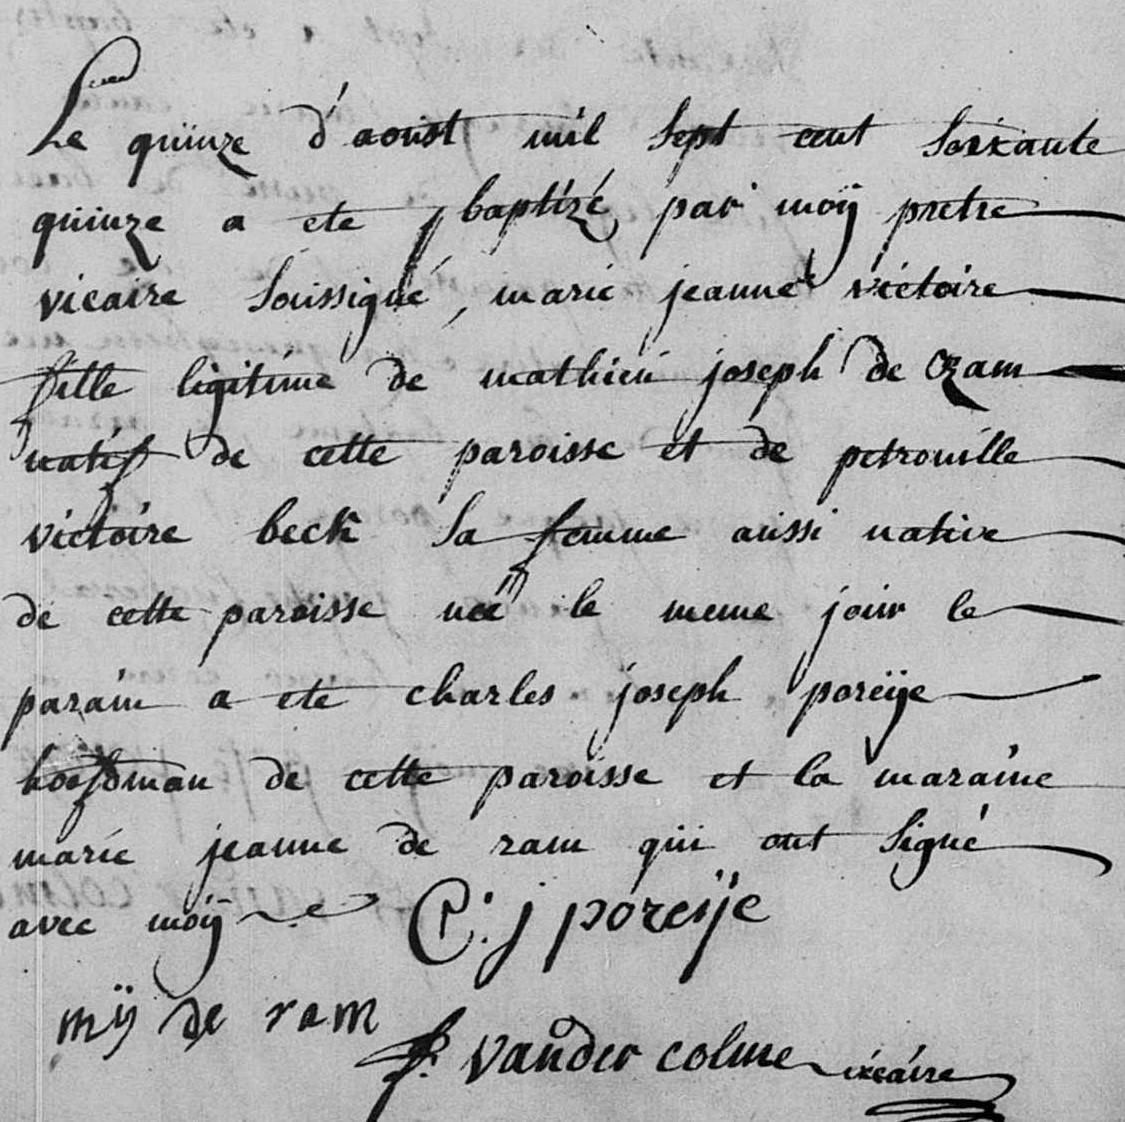 Le quinze d'aoust mil sept cent soixante
quinze a ete baptizé par moÿ pretre
vicaire soussigné, marie jeanne victoire
fille ligitime de mathieu joseph de Ram
natif de cette paroisse et de petronille
victoire beck sa femme aussi native
de cette paroisse neé le meme jour le
parain a ete charles joseph poreije
hoofdman de cette paroisse et la maraine
marie jeanne de ram qui ont signé
avec moÿ C: j poreije
mÿ de ram
f. vander colme vicaire